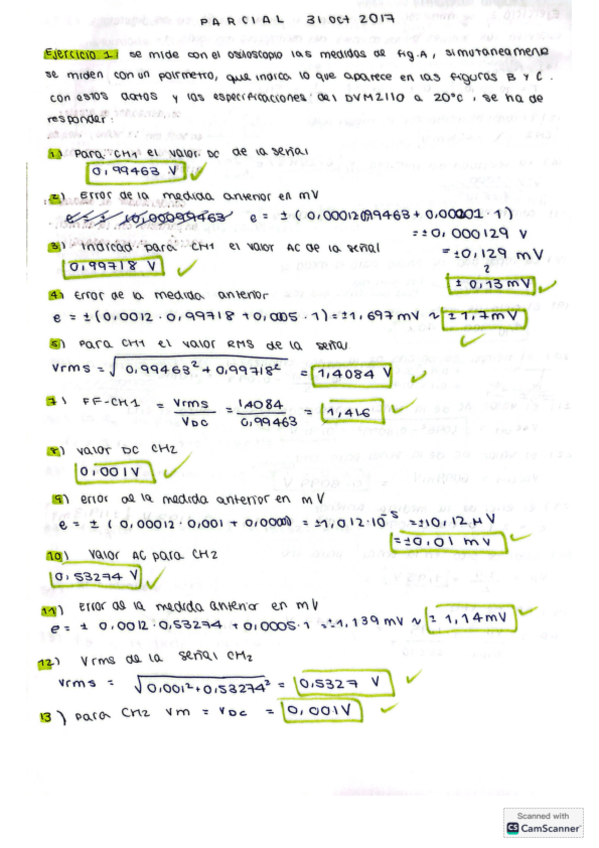 PARCIAL 31 oct 2017
Ejercicio 1: se mide con el osciloscopio las medidas de fig.A, simultaneamente
se miden con un polímetro, que indica lo que aparece en las figuras B y C.
con estos datos y las especificaciones del DVM2110 a 20°c, se ha de
responder:
1) Para CH1 el valor DC de la señal
0,99463 V ✓
2) Error de la medida anterior en mV
e = ± (0,00012·0,99463 + 0,00001·1)
= ±0,000129 V
3) Indicad para CH1 el valor AC de la señal
= ±0,129 mV
0,99718 V ✓
± 0,13 mV ✓
4) Error de la medida anterior
e = ±(0,0012 · 0,99718 + 0,0005 · 1) = ±1,697 mV ≈ ±1,7mV ✓
5) Para CH1 el valor RMS de la señal
Vrms = √0,99463² + 0,99718² = 1,4084 V ✓
7) FF-CH1 = Vrms/VDC = 1,4084/0,99463 = 1,416 ✓
8) valor DC CH2
0,001V ✓
9) error de la medida anterior en mV
e = ± (0,00012·0,001 + 0,0000) = ±1,012·10⁻⁵ = ±10,12 μV
= ±0,01 mV ✓
10) Valor AC para CH2
0,53274 V ✓
11) error de la medida anterior en mV
e = ± 0,0012·0,53274 + 0,0005·1 = ±1,139 mV ≈ ± 1,14mV ✓
12) Vrms de la señal CH2
Vrms = √0,001² + 0,53274² = 0,5327 V ✓
13) para CH2 Vm = VDC = 0,001V ✓
Scanned with
CS CamScanner